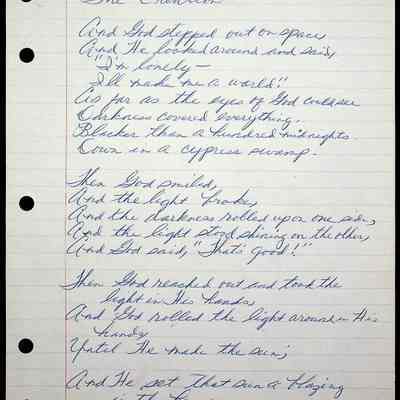 The Creation
And God stepped out on space,
And He looked around and said,
"I'm lonely –
I'll make me a world."
As far as the eyes of God could see
Darkness covered everything.
Blacker than a hundred midnights.
Down in a cypress swamp.
Then God smiled,
And the light broke,
And the darkness rolled upon one side,
And the light stood shining on the other,
And God said, "That's good!"
Then God reached out and took the
light in His hands,
And God rolled the light around in His
hands
Until He made the sun;
And He set that sun a blazing
in the